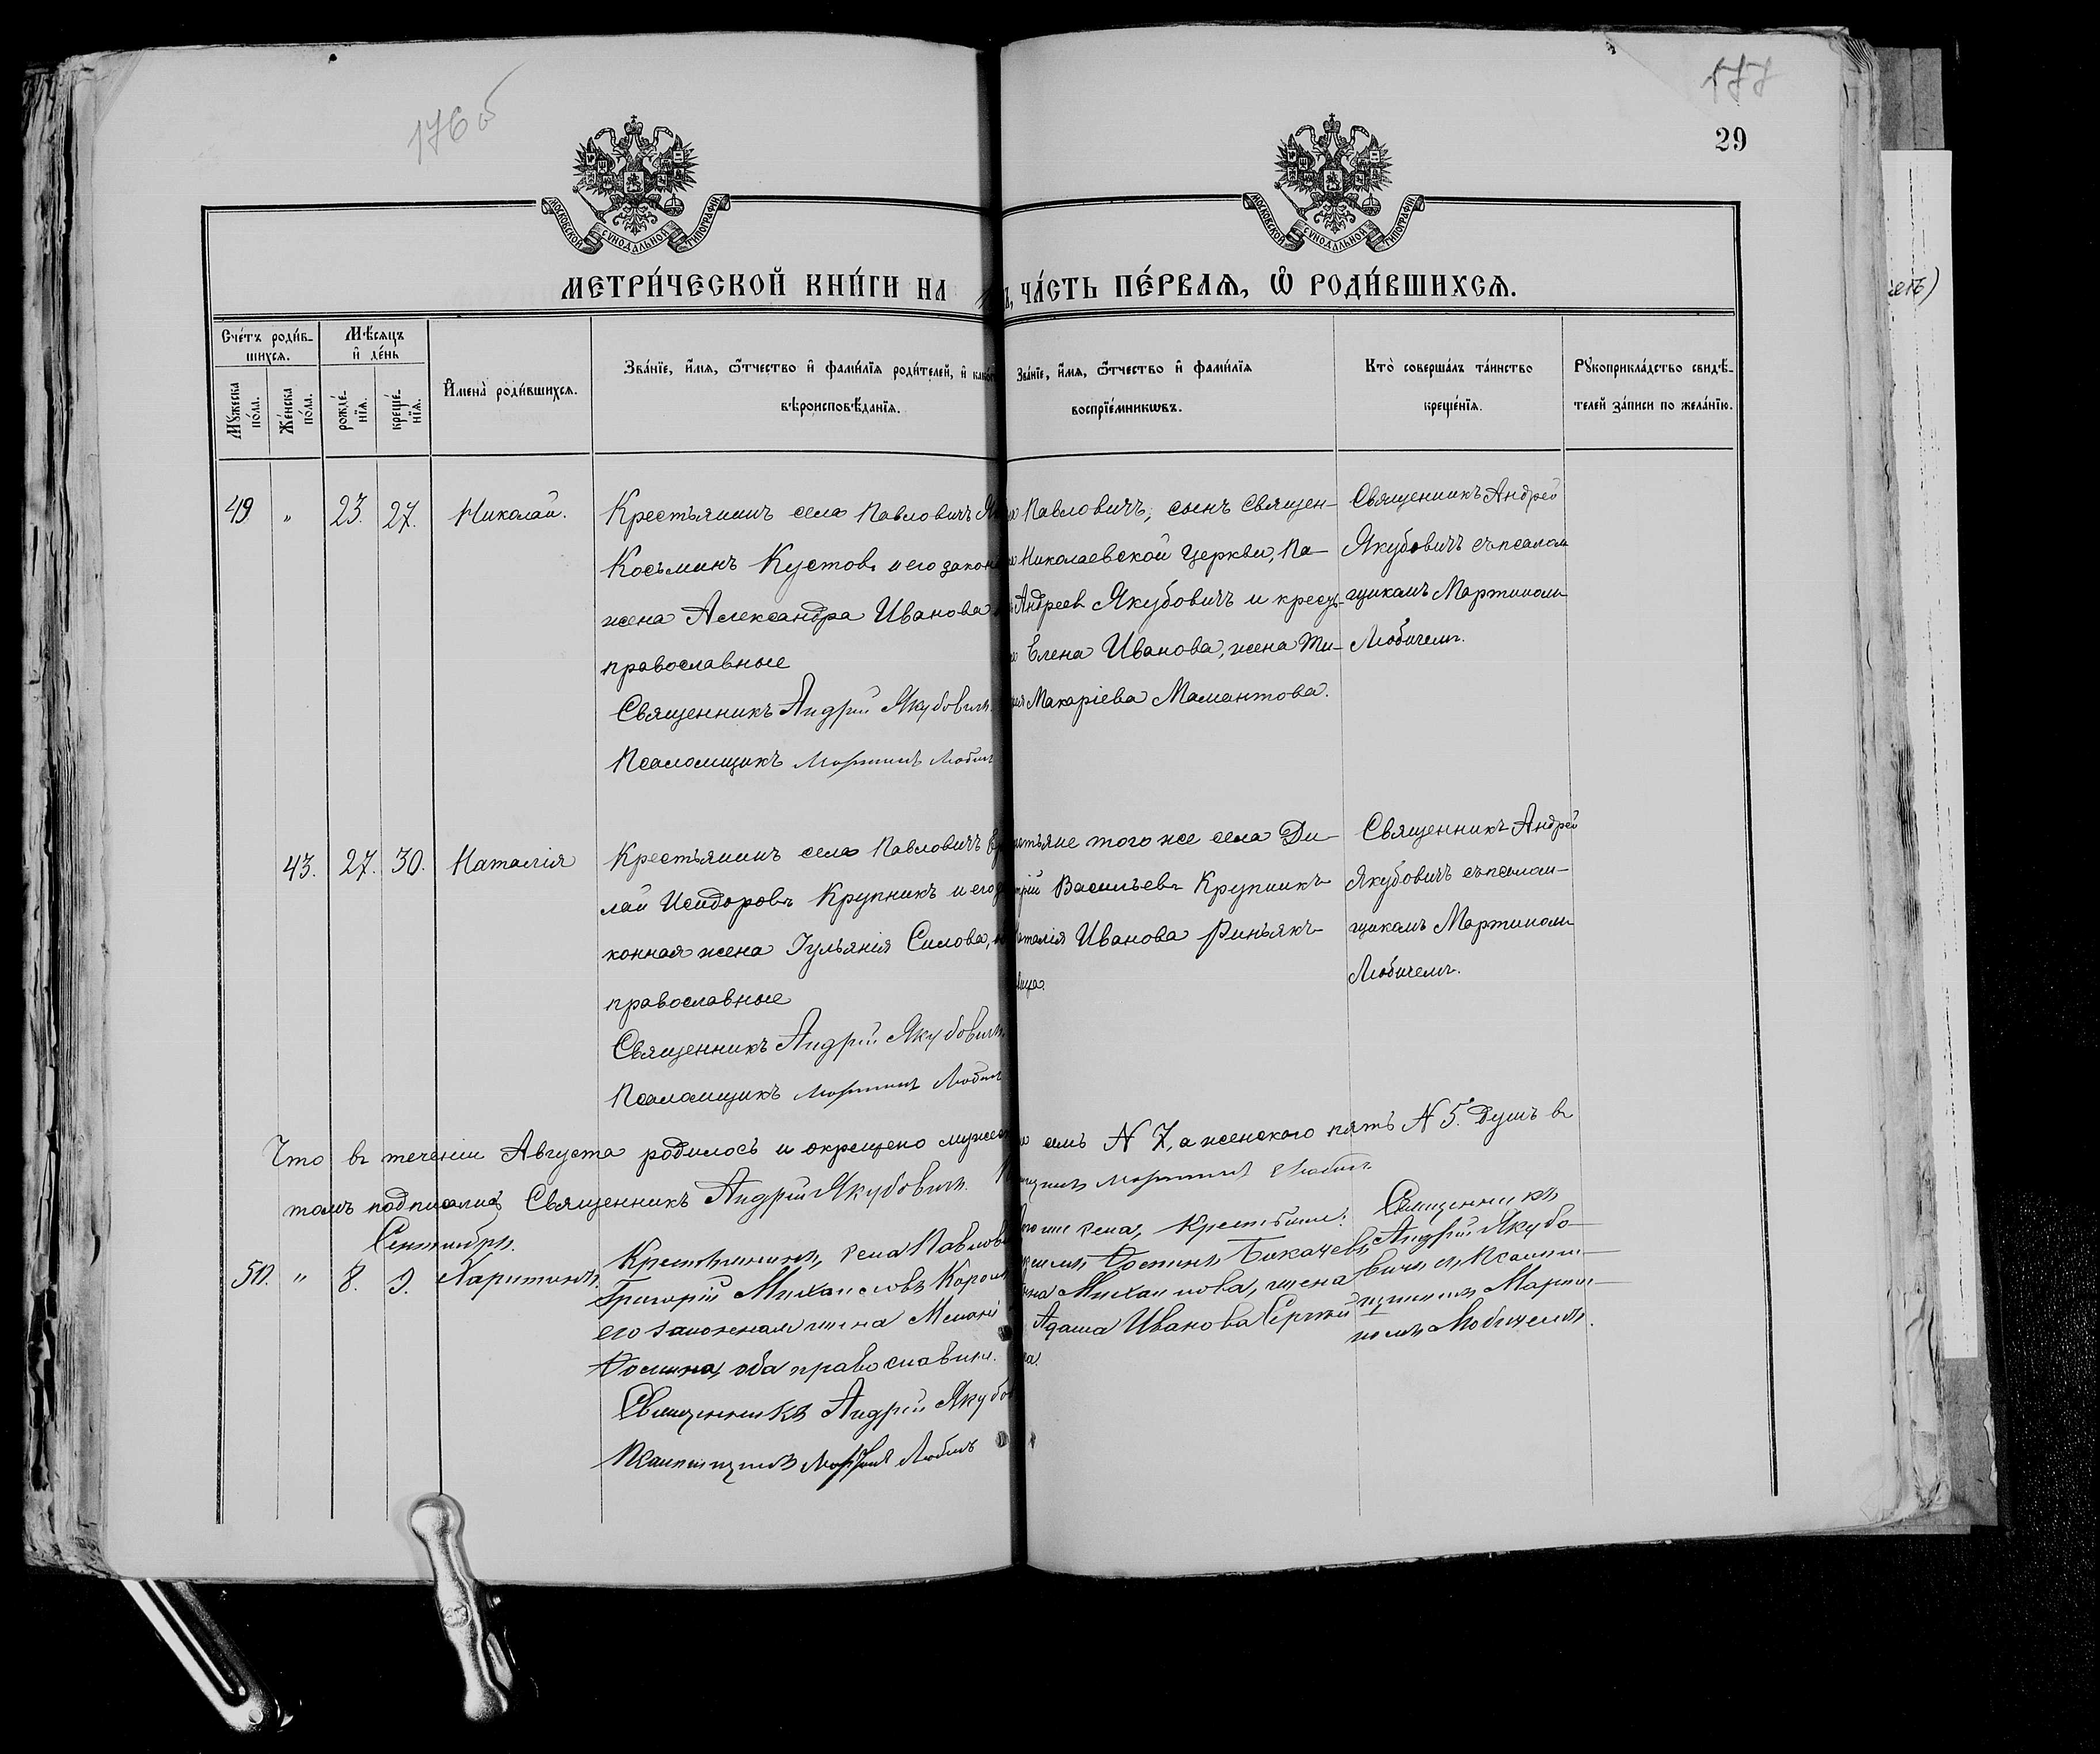 176 об
177
29
МОСКОВСКОЙ СУНОДАЛЬНОЙ ТИПОГРАФІИ
МОСКОВСКОЙ СУНОДАЛЬНОЙ ТИПОГРАФІИ
МЕТРИ́ЧЕСКОЙ КНИ́ГИ НА
ЧА́СТЬ ПЕ́РВАѦ, Ѽ РОДИ́ВШИХСѦ.
Сче́тъ роди́в-
шихсѧ.
Мѣ́сѧцъ
и҆ де́нь
Мꙋ́жеска
по́ла.
Же́нска
по́ла.
рожде́-
нїѧ.
креще́-
нїѧ.
И҆мена̀ роди́вшихсѧ.
Зва́нїе, и҆́мѧ, ѻ҆́тчество и҆ фами́лїѧ роди́телей, и҆ како́гѡ
вѣроисповѣ́данїѧ.
Зва́нїе, и҆́мѧ, ѻ҆́тчество и҆ фами́лїѧ
воспрїе́мникѡвъ.
Кто̀ соверша́лъ та́инство
креще́нїѧ.
Рꙋкоприкла́дство свидѣ́-
телей за́писи по жела́нїю.
49 " 23. 27. Николай.
Крестьянинъ села Павловичъ
Косьминъ Кустовъ и его закон
жена Александра Иванова
православные
Священникъ Андрей Якубовичъ.
Псаломщикъ Мартинъ Любич
Павловичъ, сынъ Священ-
Николаевской Церкви, Па-
Андреев Якубовичъ и кресть-
Елена Иванова, жена Ти-
Макаріева Мамантова.
Священникъ Андрей
Якубовичъ съ псалом
щикомъ Мартиномъ
Любичемъ.
43. 27. 30. Наталія
Крестьянинъ села Павловичъ
лай Исидоровъ Крупникъ и его за
конная жена Іульянія Силова,
православные
Священникъ Андрей Якубовичъ.
Псаломщикъ Мартинъ Любич
рестьяне того же села Ди-
трій Васильевъ Крупникъ
Наталія Иванова Риньякъ
вица.
Священникъ Андрей
Якубовичъ съ псалом-
щикомъ Мартиномъ
Любичемъ.
Что въ теченіи Августа родилось и окрещено мужеск семь № 7, а женскаго пять № 5. душъ въ
томъ подписались Священникъ Андрей Якубовичъ. Мартинъ Любич
Сентябрь.
50. " 8. 9. Харитонъ.
Крестьянинъ села Павлови
Григорій Михаиловъ Корол
его законная жена Меланi
Фомина, оба православные.
Священникъ Андрей Якубов
Псаломщикъ Мартинъ Любичъ
того же села, Крестьяне:
Фоминъ Бикачевъ
Михаилова, жена
Адама Иванова
Священникъ
Андрей Якубо-
вичъ съ Псалом-
щикомъ Марти-
номъ Любичемъ.